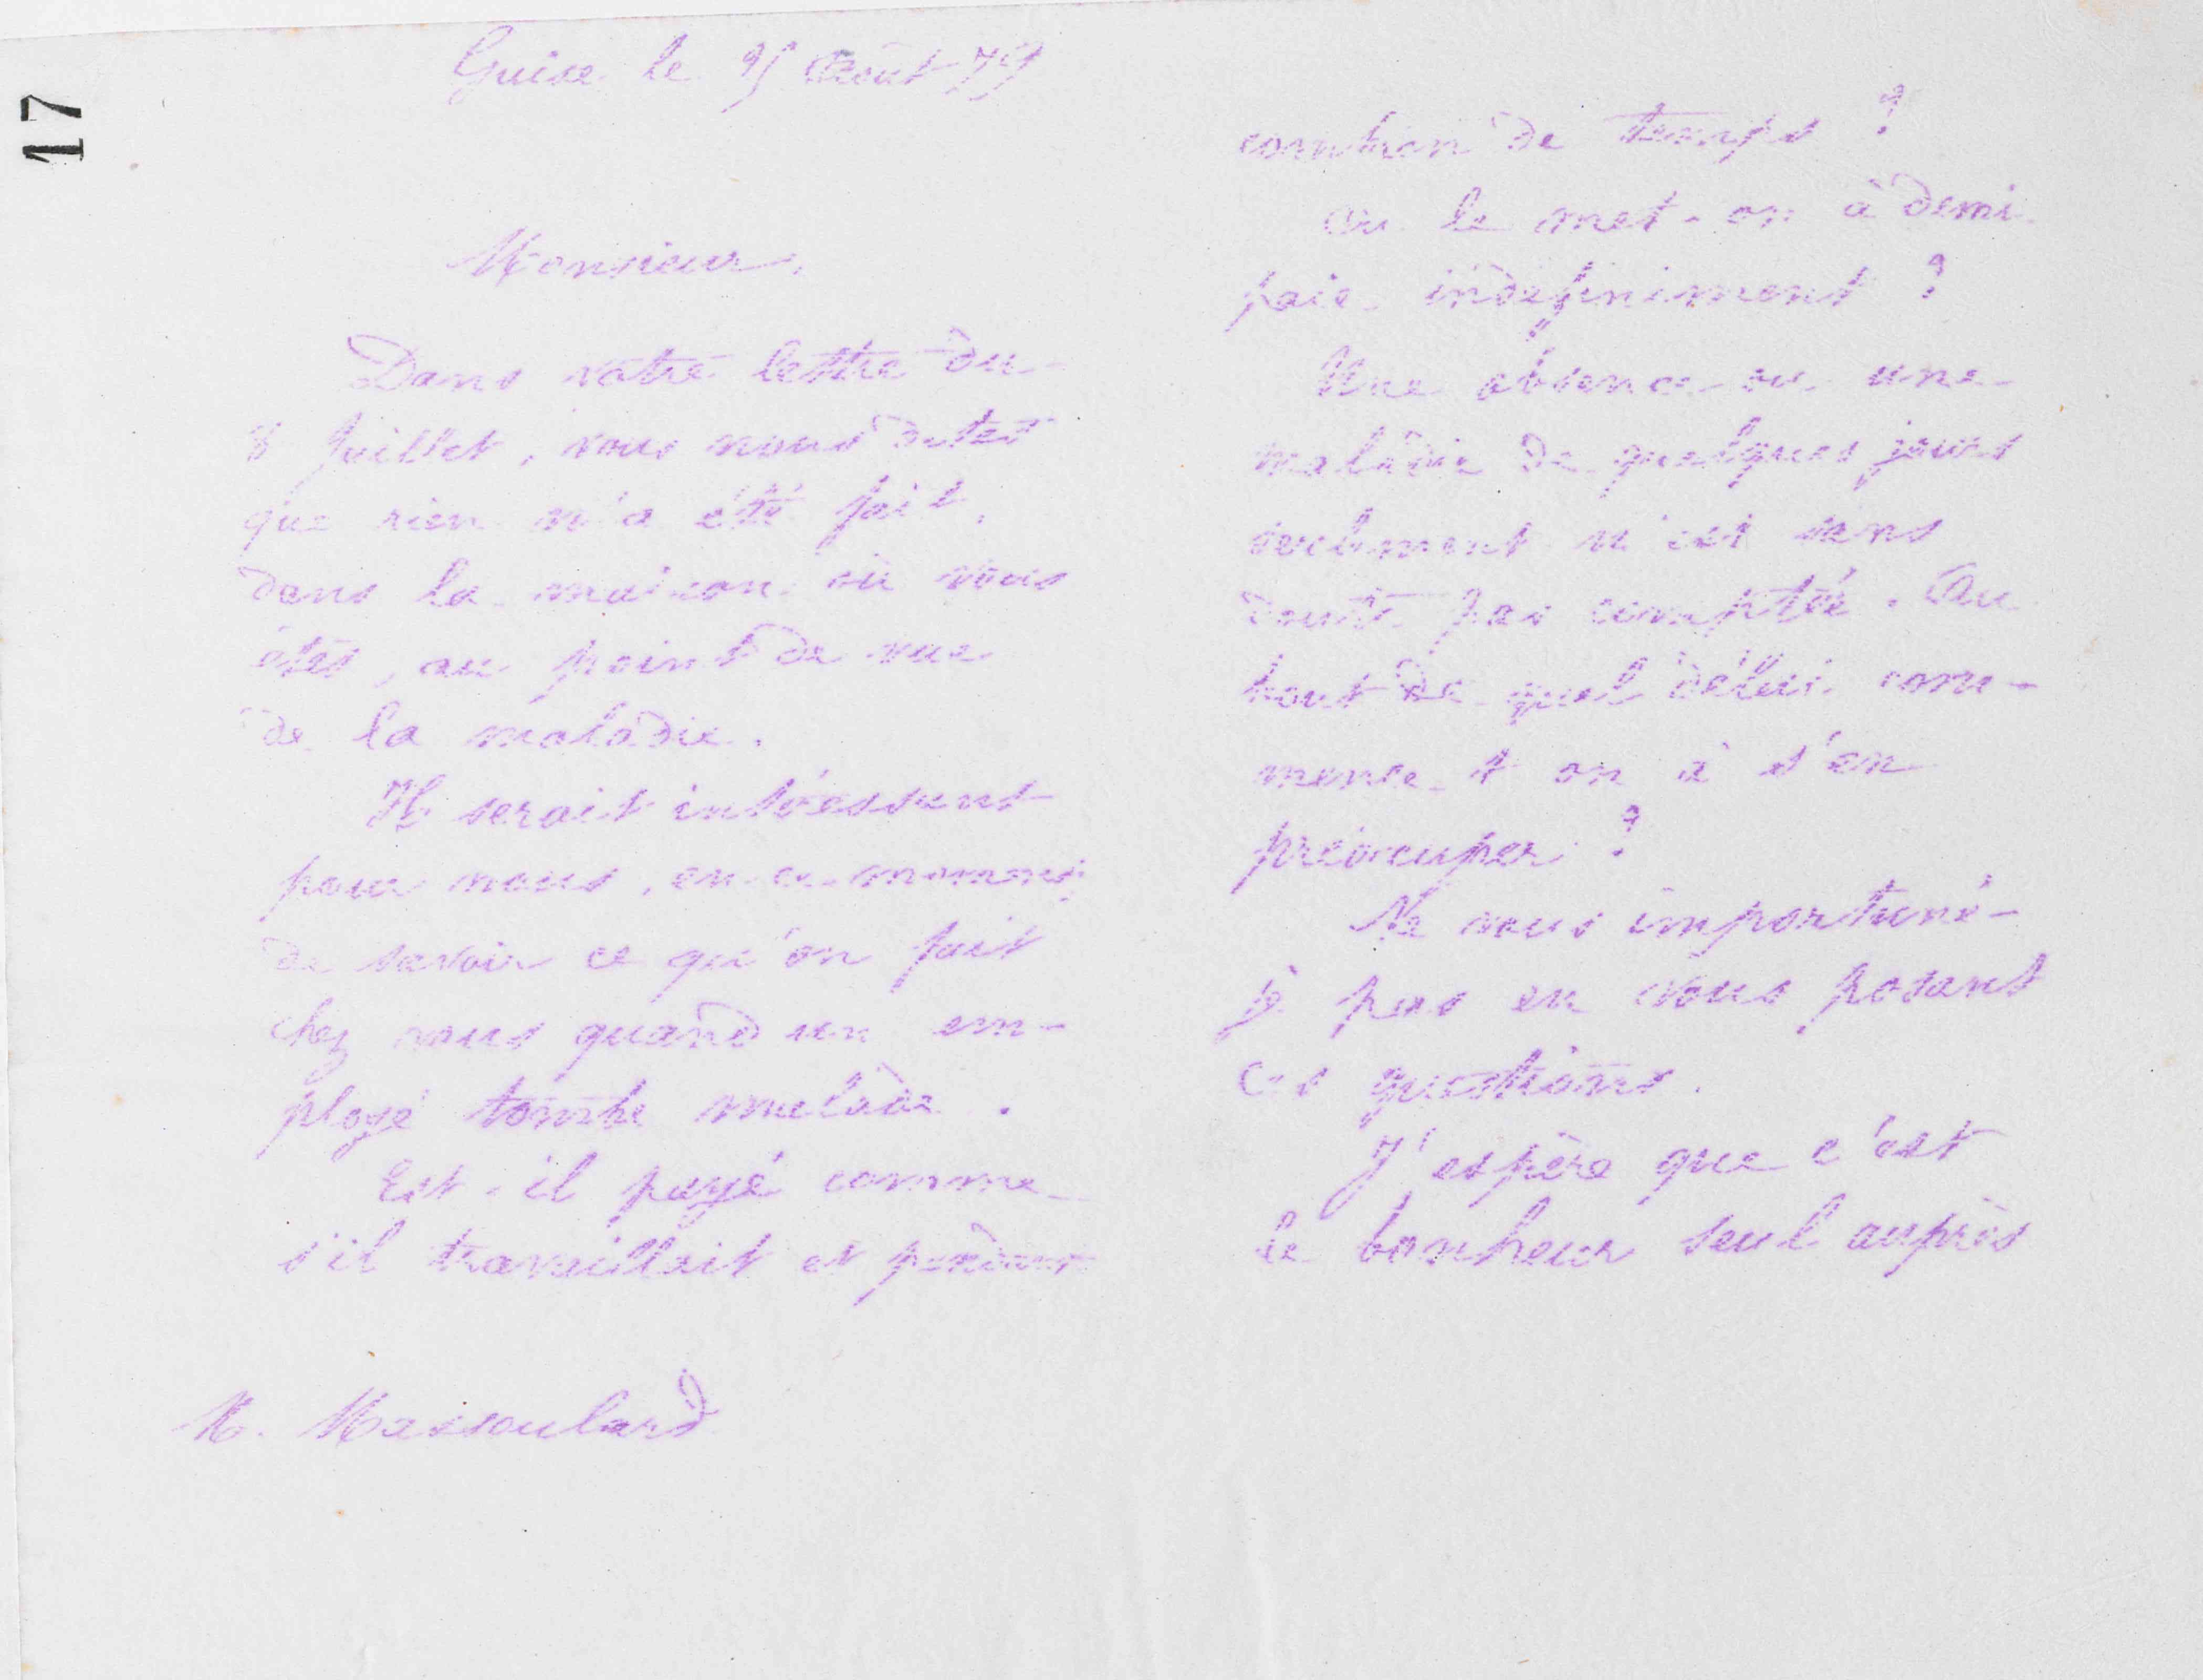 17
Guise le 9 Août 79
Monsieur,
Dans votre lettre du
8 Juillet, vous nous dites
que rien n'a été fait,
dans la maison où vous
êtes, au point de vue
de la maladie.
Il serait intéressant
pour nous, en ce moment,
de savoir ce qu'on fait
chez vous quand un em-
ployé tombe malade.
Est-il payé comme
s'il travaillait et pendant
M. Massoulard
combien de temps ?
Ou le met-on à demi
paie indéfiniment ?
Une absence ou une
maladie de quelques jours
seulement n'est sans
doute pas comptée. Au
bout de quel délai com-
mence-t-on à s'en
préoccuper ?
Ne vous importuné-
je pas en vous posant
ces questions.
J'espère que c'est
le bonheur seul auprès